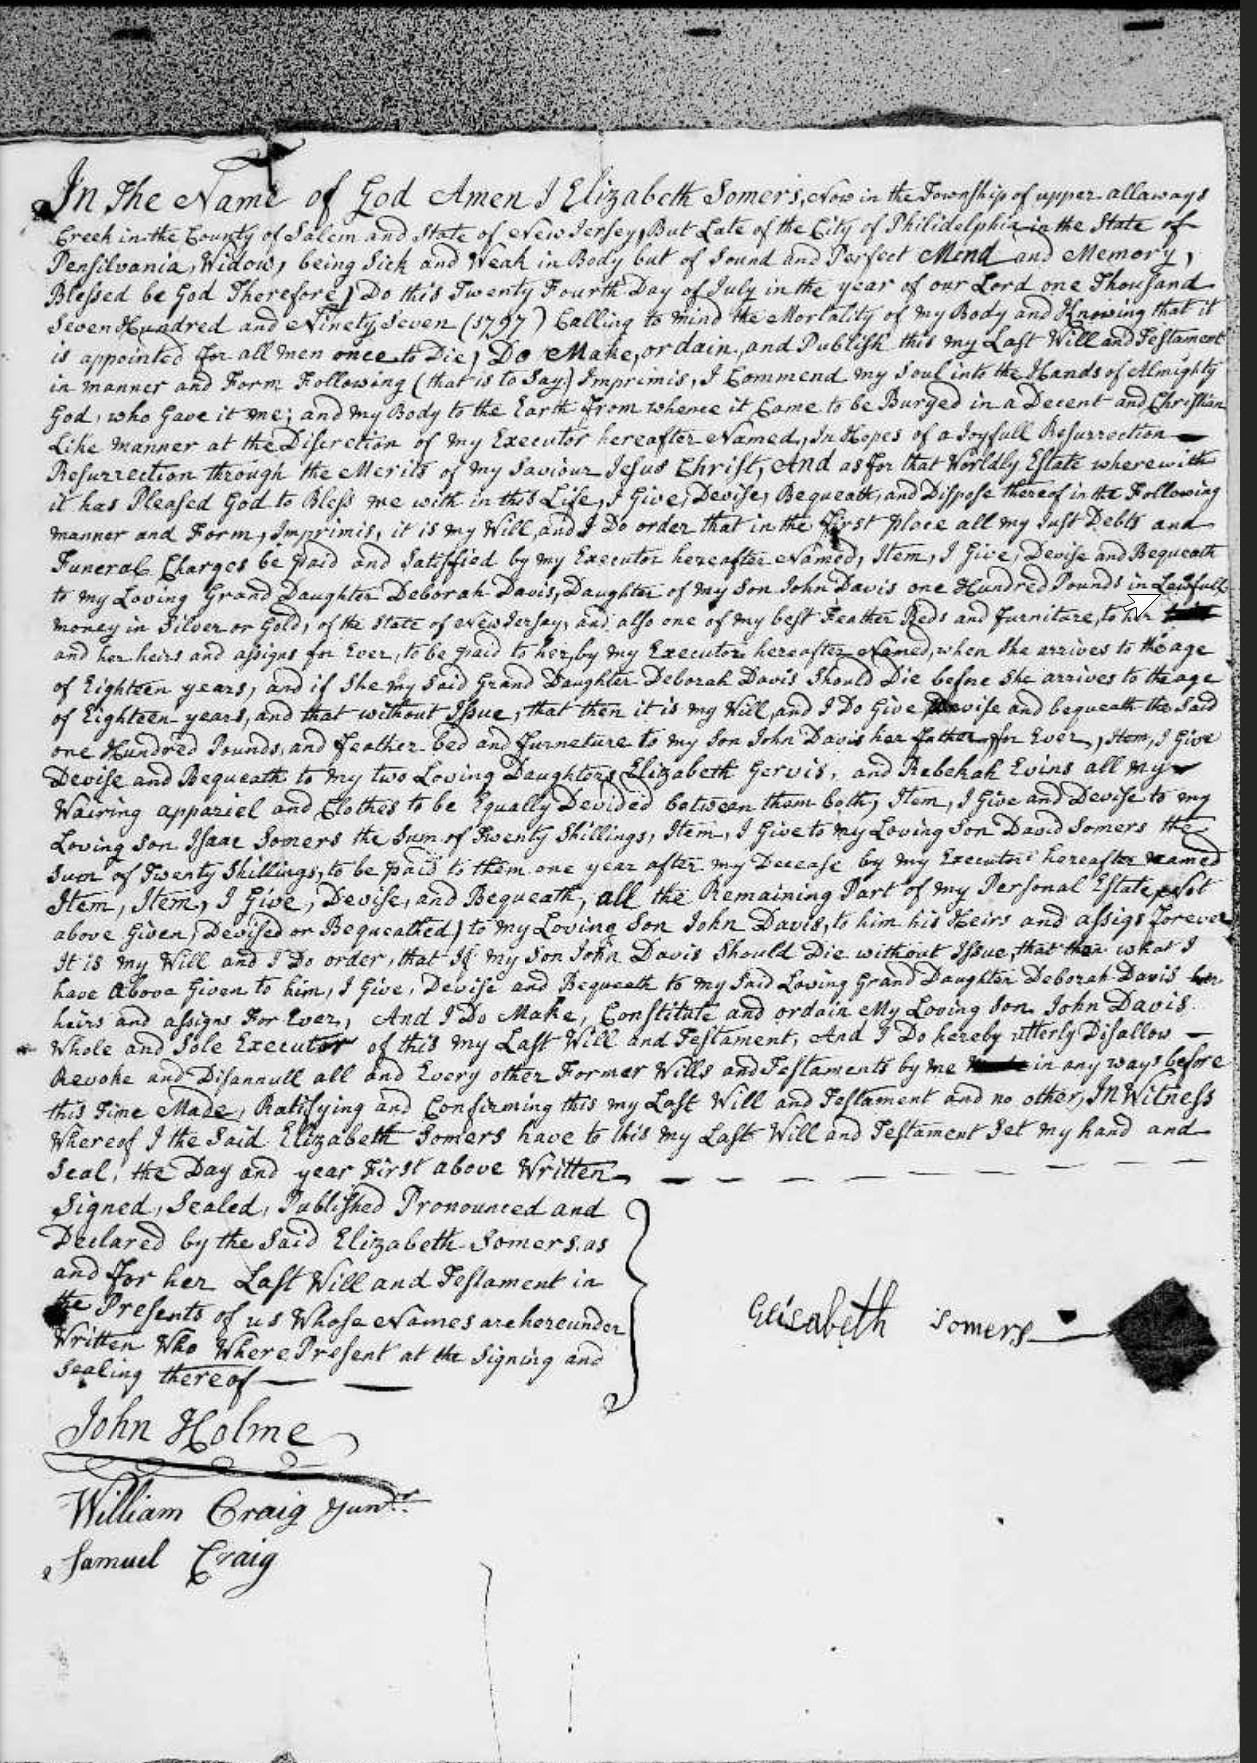 In The Name of God Amen I Elizabeth Somers, Now in the Township of upper allaways
Creek in the County of Salem and State of New Jersey, But Late of the City of Philidelphia in the State of
Pensilvania, Widow, being Sick and Weak in Body but of Sound and Perfect Mind and Memory,
Blessed be God Therefore) Do this Twenty Fourth Day of July in the year of our Lord one Thousand
Seven Hundred and Ninety Seven (1797) Calling to mind the Mortality of my Body and Knowing that it
is appointed for all men once to Die, Do Make, ordain, and Publish this my Last Will and Testament
in manner and Form Following (that is to Say) Imprimis, I Commend my Soul into the Hands of Almighty
God, who Gave it me; and my Body to the Earth from whence it Came to be Buryed in a Decent and Christian
Like manner at the Discretion of my Executor hereafter Named, In Hopes of a Joyfull Resurrection
Resurrection through the Merits of my Saviour Jesus Christ, And as for that Worldly Estate wherewith
it has Pleased God to Bless me with in this Life, I Give, Devise, Bequeath, and Dispose thereof in the Following
manner and Form, Imprimis, it is my Will, and I Do order that in the first place all my Just Debts and
Funeral Charges be paid and Satisfied by my Executor hereafter Named, Item, I Give, Devise and Bequeath
to my Loving Grand Daughter Deborah Davis, Daughter of my Son John Davis one Hundred Pounds in Lawfull
money in Silver or Gold, of the State of New Jersey, and also one of my best Feather Beds and furniture, to her
and her heirs and assigns for Ever, to be paid to her, by my Executor hereafter Named, when She arrives to the age
of Eighteen years, and if She my Said Grand Daughter Deborah Davis Should Die before She arrives to the age
of Eighteen years, and that without Issue, that then it is my Will, and I Do Give Devise and bequeath the Said
one Hundred Pounds, and feather bed and furneture to my Son John Davis her father for Ever, Item, I Give
Devise and Bequeath to my two Loving Daughters Elizabeth Gervis, and Rebekah Evins all my
Wairing appariel and Clothes to be Equally Devided between them both, Item, I Give and Devise to my
Loving Son Isaac Somers the Sum of Twenty Shillings, Item, I Give to my Loving Son David Somers the
Sum of Twenty Shillings, to be paid to them one year after my Decease by my Executor hereafter named
Item, Item, I Give, Devise, and Bequeath, all the Remaining Part of my Personal Estate, Not
above Given, Devised or Bequeathed) to my Loving Son John Davis, to him his Heirs and assigs forever
It is my Will and I Do order, that If my Son John Davis Should Die without Issue, that then what I
have Above Given to him, I Give, Devise and Bequeath to my Said Loving Grand Daughter Deborah Davis her
heirs and assigns For Ever, And I Do Make, Constitute and ordain My Loving Son John Davis
Whole and Sole Executor of this my Last Will and Testament, And I Do hereby utterly Disallow
Revoke and Disannull all and Every other Former Wills and Testaments by me in any ways before
this Time Made, Ratifying and Confirming this my Last Will and Testament and no other, IN Witness
Whereof I the Said Elizabeth Somers have to this my Last Will and Testament Set my hand and
Seal, the Day and year First above Written
Signed, Sealed, Published Pronounced and
Declared by the Said Elizabeth Somers as
and for her Last Will and Testament in
the Presents of us Whose Names are hereunder
Written Who Where Present at the Signing and
Sealing thereof
Elisabeth Somers
John Holme
William Craig Junr
Samuel Craig